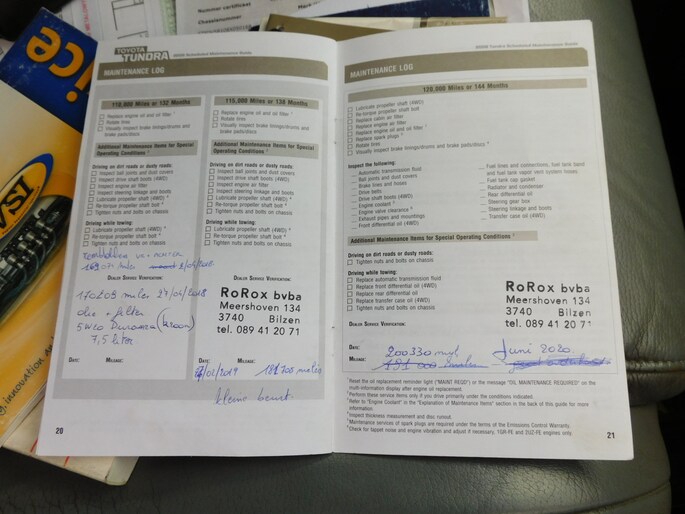 Nummer certificaat
Chassisnummer
ice
VSI
innovation
TOYOTA
TUNDRA
2008 Scheduled Maintenance Guide
MAINTENANCE LOG
110,000 Miles or 132 Months
Replace engine oil and oil filter
Rotate tires
Visually inspect brake linings/drums and
brake pads/discs
Additional Maintenance Items for Special
Operating Conditions
Driving on dirt roads or dusty roads:
Inspect ball joints and dust covers
Inspect drive shaft boots (4WD)
Inspect engine air filter
Inspect steering linkage and boots
Lubricate propeller shaft (4WD)
Re-torque propeller shaft bolt
Tighten nuts and bolts on chassis
Driving while towing:
Lubricate propeller shaft (4WD)
Re-torque propeller shaft bolt
Tighten nuts and bolts on chassis
DEALER SERVICE VERIFICATION:
170209 miles 27/04/2018
olie + filter
5W20 Duranza (kroon)
7,5 liter
DATE: MILEAGE:
20
115,000 Miles or 138 Months
Replace engine oil and oil filter
Rotate tires
Visually inspect brake linings/drums and
brake pads/discs
Additional Maintenance Items for Special
Operating Conditions
Driving on dirt roads or dusty roads:
Inspect ball joints and dust covers
Inspect drive shaft boots (4WD)
Inspect engine air filter
Inspect steering linkage and boots
Lubricate propeller shaft (4WD)
Re-torque propeller shaft bolt
Tighten nuts and bolts on chassis
Driving while towing:
Lubricate propeller shaft (4WD)
Re-torque propeller shaft bolt
Tighten nuts and bolts on chassis
DEALER SERVICE VERIFICATION:
RoRox bvba
Meershoven 134
3740 Bilzen
tel. 089 41 20 71
DATE: MILEAGE:
/02/2019 181700 miles
kleine beurt
2008 Tundra Scheduled Maintenance Guide
MAINTENANCE LOG
120,000 Miles or 144 Months
Lubricate propeller shaft (4WD)
Re-torque propeller shaft bolt
Replace cabin air filter
Replace engine air filter
Replace engine oil and oil filter
Replace spark plugs
Rotate tires
Visually inspect brake linings/drums and brake pads/discs
Inspect the following:
Automatic transmission fluid
Ball joints and dust covers
Brake lines and hoses
Drive belts
Drive shaft boots (4WD)
Engine coolant
Engine valve clearance
Exhaust pipes and mountings
Front differential oil (4WD)
Fuel lines and connections, fuel tank band
and fuel tank vapor vent system hoses
Fuel tank cap gasket
Radiator and condenser
Rear differential oil
Steering gear box
Steering linkage and boots
Transfer case oil (4WD)
Additional Maintenance Items for Special Operating Conditions
Driving on dirt roads or dusty roads:
Tighten nuts and bolts on chassis
Driving while towing:
Replace automatic transmission fluid
Replace front differential oil (4WD)
Replace rear differential oil
Replace transfer case oil (4WD)
Tighten nuts and bolts on chassis
RoRox bvba
Meershoven 134
3740 Bilzen
tel. 089 41 20 71
DEALER SERVICE VERIFICATION:
DATE: 200330 Juni 2020
MILEAGE:
Reset the oil replacement reminder light ("MAINT REQD") or the message "OIL MAINTENANCE REQUIRED" on the
multi-information display after engine oil replacement.
Perform these service items only if you drive primarily under the conditions indicated.
Refer to "Engine Coolant" in the "Explanation of Maintenance Items" section in the back of this guide for more
information.
Inspect thickness measurement and disc runout.
Maintenance services of spark plugs are required under the terms of the Emissions Control Warranty.
Check for tappet noise and engine vibration and adjust if necessary, 1GR-FE and 2UZ-FE engines only.
21